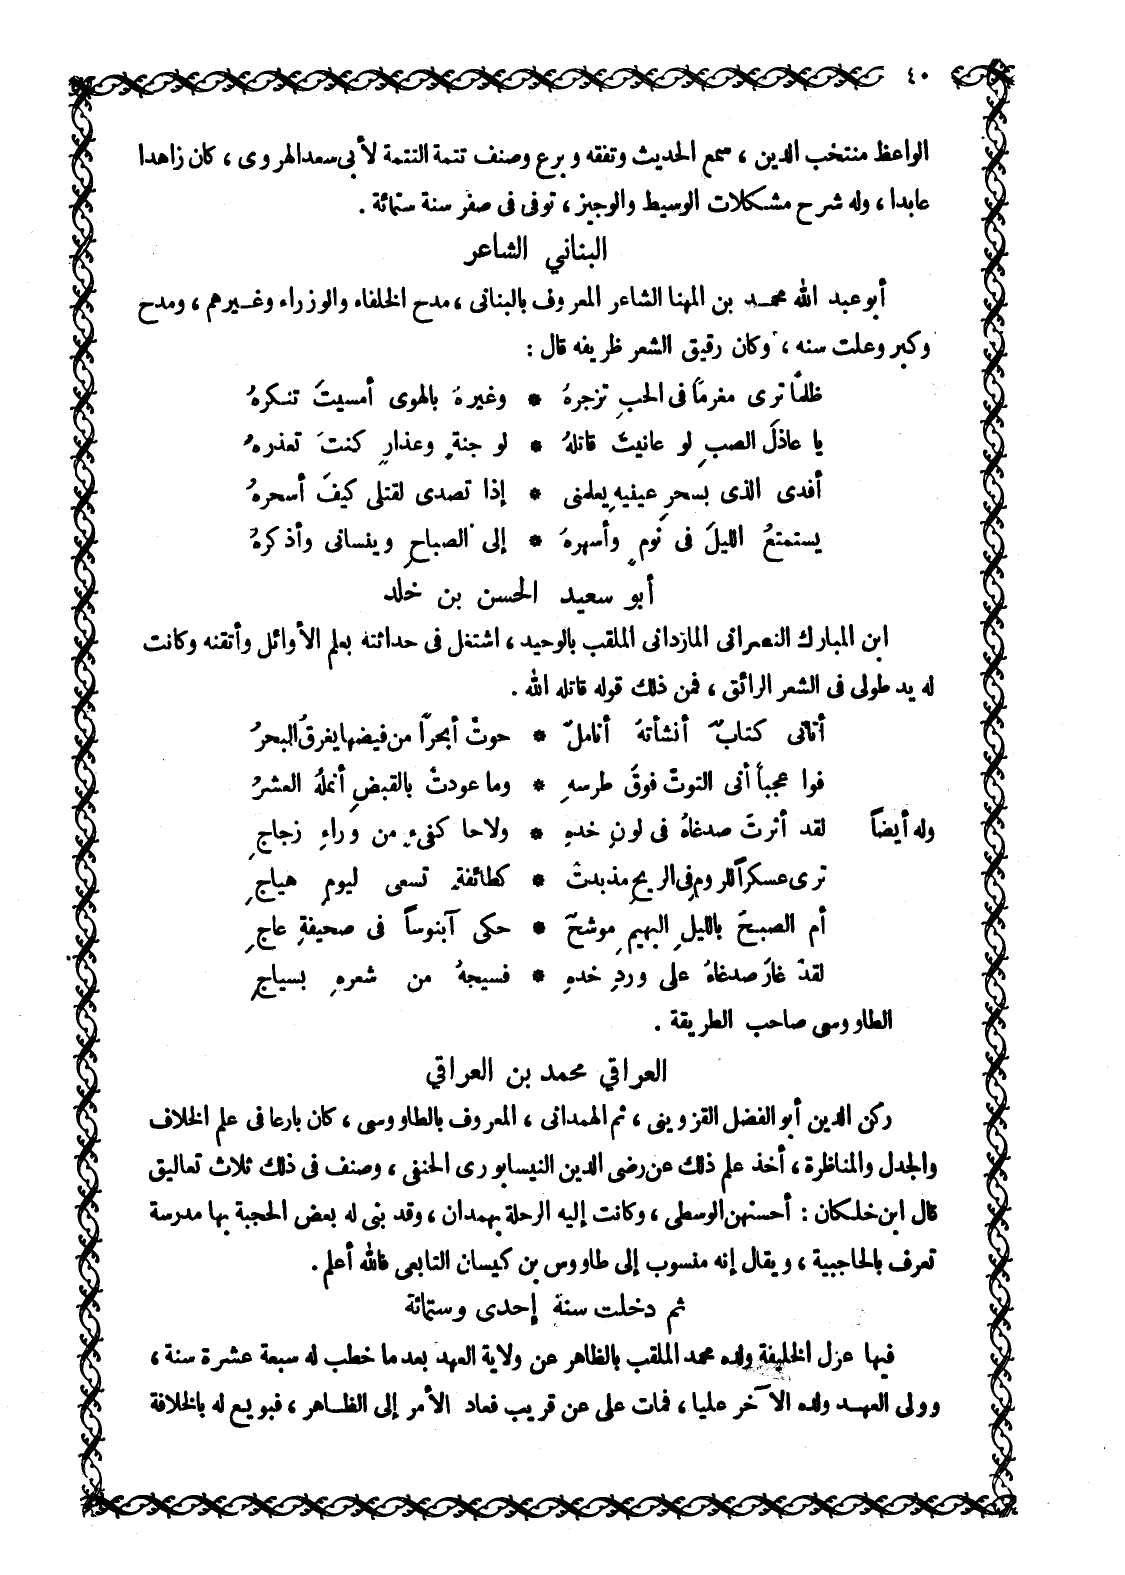 ٤٠
الواعظ منتخب الدين ، سمع الحديث وتفقه وبرع وصنف تتمة التتمة لأبى سعد الهروى ، كان زاهدا
عابدا ، وله شرح مشكلات الوسيط والوجيز ، توفى فى صفر سنة ستمائة .
البناني الشاعر
أبو عبد الله محمد بن المهنا الشاعر المعروف بالبنانى ، مدح الخلفاء والوزراء وغيرهم ، ومدح
وكبر وعلت سنه ، وكان رقيق الشعر ظريفه قال :
ظلماً ترى مغرماً فى الحبِ تزجرهُ * وغيرهُ بالهوى أمسيتَ تنكرهُ
يا عاذلَ الصبِ لو عانيتَ قاتلهُ * لو جنةٍ وعذارٍ كنتَ تعذرهُ
أفدى الذى بسحرِ عينيهِ يعلمنى * إذا تصدى لقتلى كيفَ أسحرهُ
يستمتعُ الليلَ فى نومٍ وأسهرهَ * إلى الصباحِ وينسانى وأذكرهُ
أبو سعيد الحسن بن خلد
ابن المبارك النصرانى المازدانى الملقب بالوحيد ، اشتغل فى حداثته بعلم الأوائل وأتقنه وكانت
له يد طولى فى الشعر الرائق ، فمن ذلك قوله قاتله الله .
أتانى كتابٌ أنشأتهُ أناملٌ * حوتْ أبحراً من فيضها يغرقُ البحرُ
فوا عجباً أنى التوتْ فوقَ طرسهِ * وما عودتْ بالقبضِ أنملهُ العشرُ
وله أيضاً لقد أثرتَ صدغاهُ فى لونِ خدهِ * ولاحا كفىءٍ من وراءِ زجاجِ
ترى عسكراً للرومِ فى الريحِ مذبدتْ * كطائفةٍ تسعى ليومِ هياجِ
أم الصبحُ بالليلِ البهيمِ موشحٌ * حكى آبنوساً فى صحيفةِ عاجِ
لقدْ غارَ صدغاهُ على وردِ خدهِ * فسيجهُ من شعرهِ بسياجِ
الطاووسى صاحب الطريقة .
العراقي محمد بن العراقي
ركن الدين أبو الفضل القزوينى ، ثم الهمدانى ، المعروف بالطاووسى ، كان بارعا فى علم الخلاف
والجدل والمناظرة ، أخذ علم ذلك عن رضى الدين النيسابورى الحنفى ، وصنف فى ذلك ثلاث تعاليق
قال ابن خلكان : أحسنهن الوسطى ، وكانت إليه الرحلة بهمدان ، وقد بنى له بعض الحجبة بها مدرسة
تعرف بالحاجبية ، ويقال إنه منسوب إلى طاووس بن كيسان التابعى فالله أعلم .
ثم دخلت سنة إحدى وستمائة
فيها عزل الخليفة ولده محمد الملقب بالظاهر عن ولاية العهد بعد ما خطب له سبعة عشرة سنة ،
وولى العهد ولده الآخر عليا ، فمات على عن قريب فعاد الأمر إلى الظاهر ، فبويع له بالخلافة